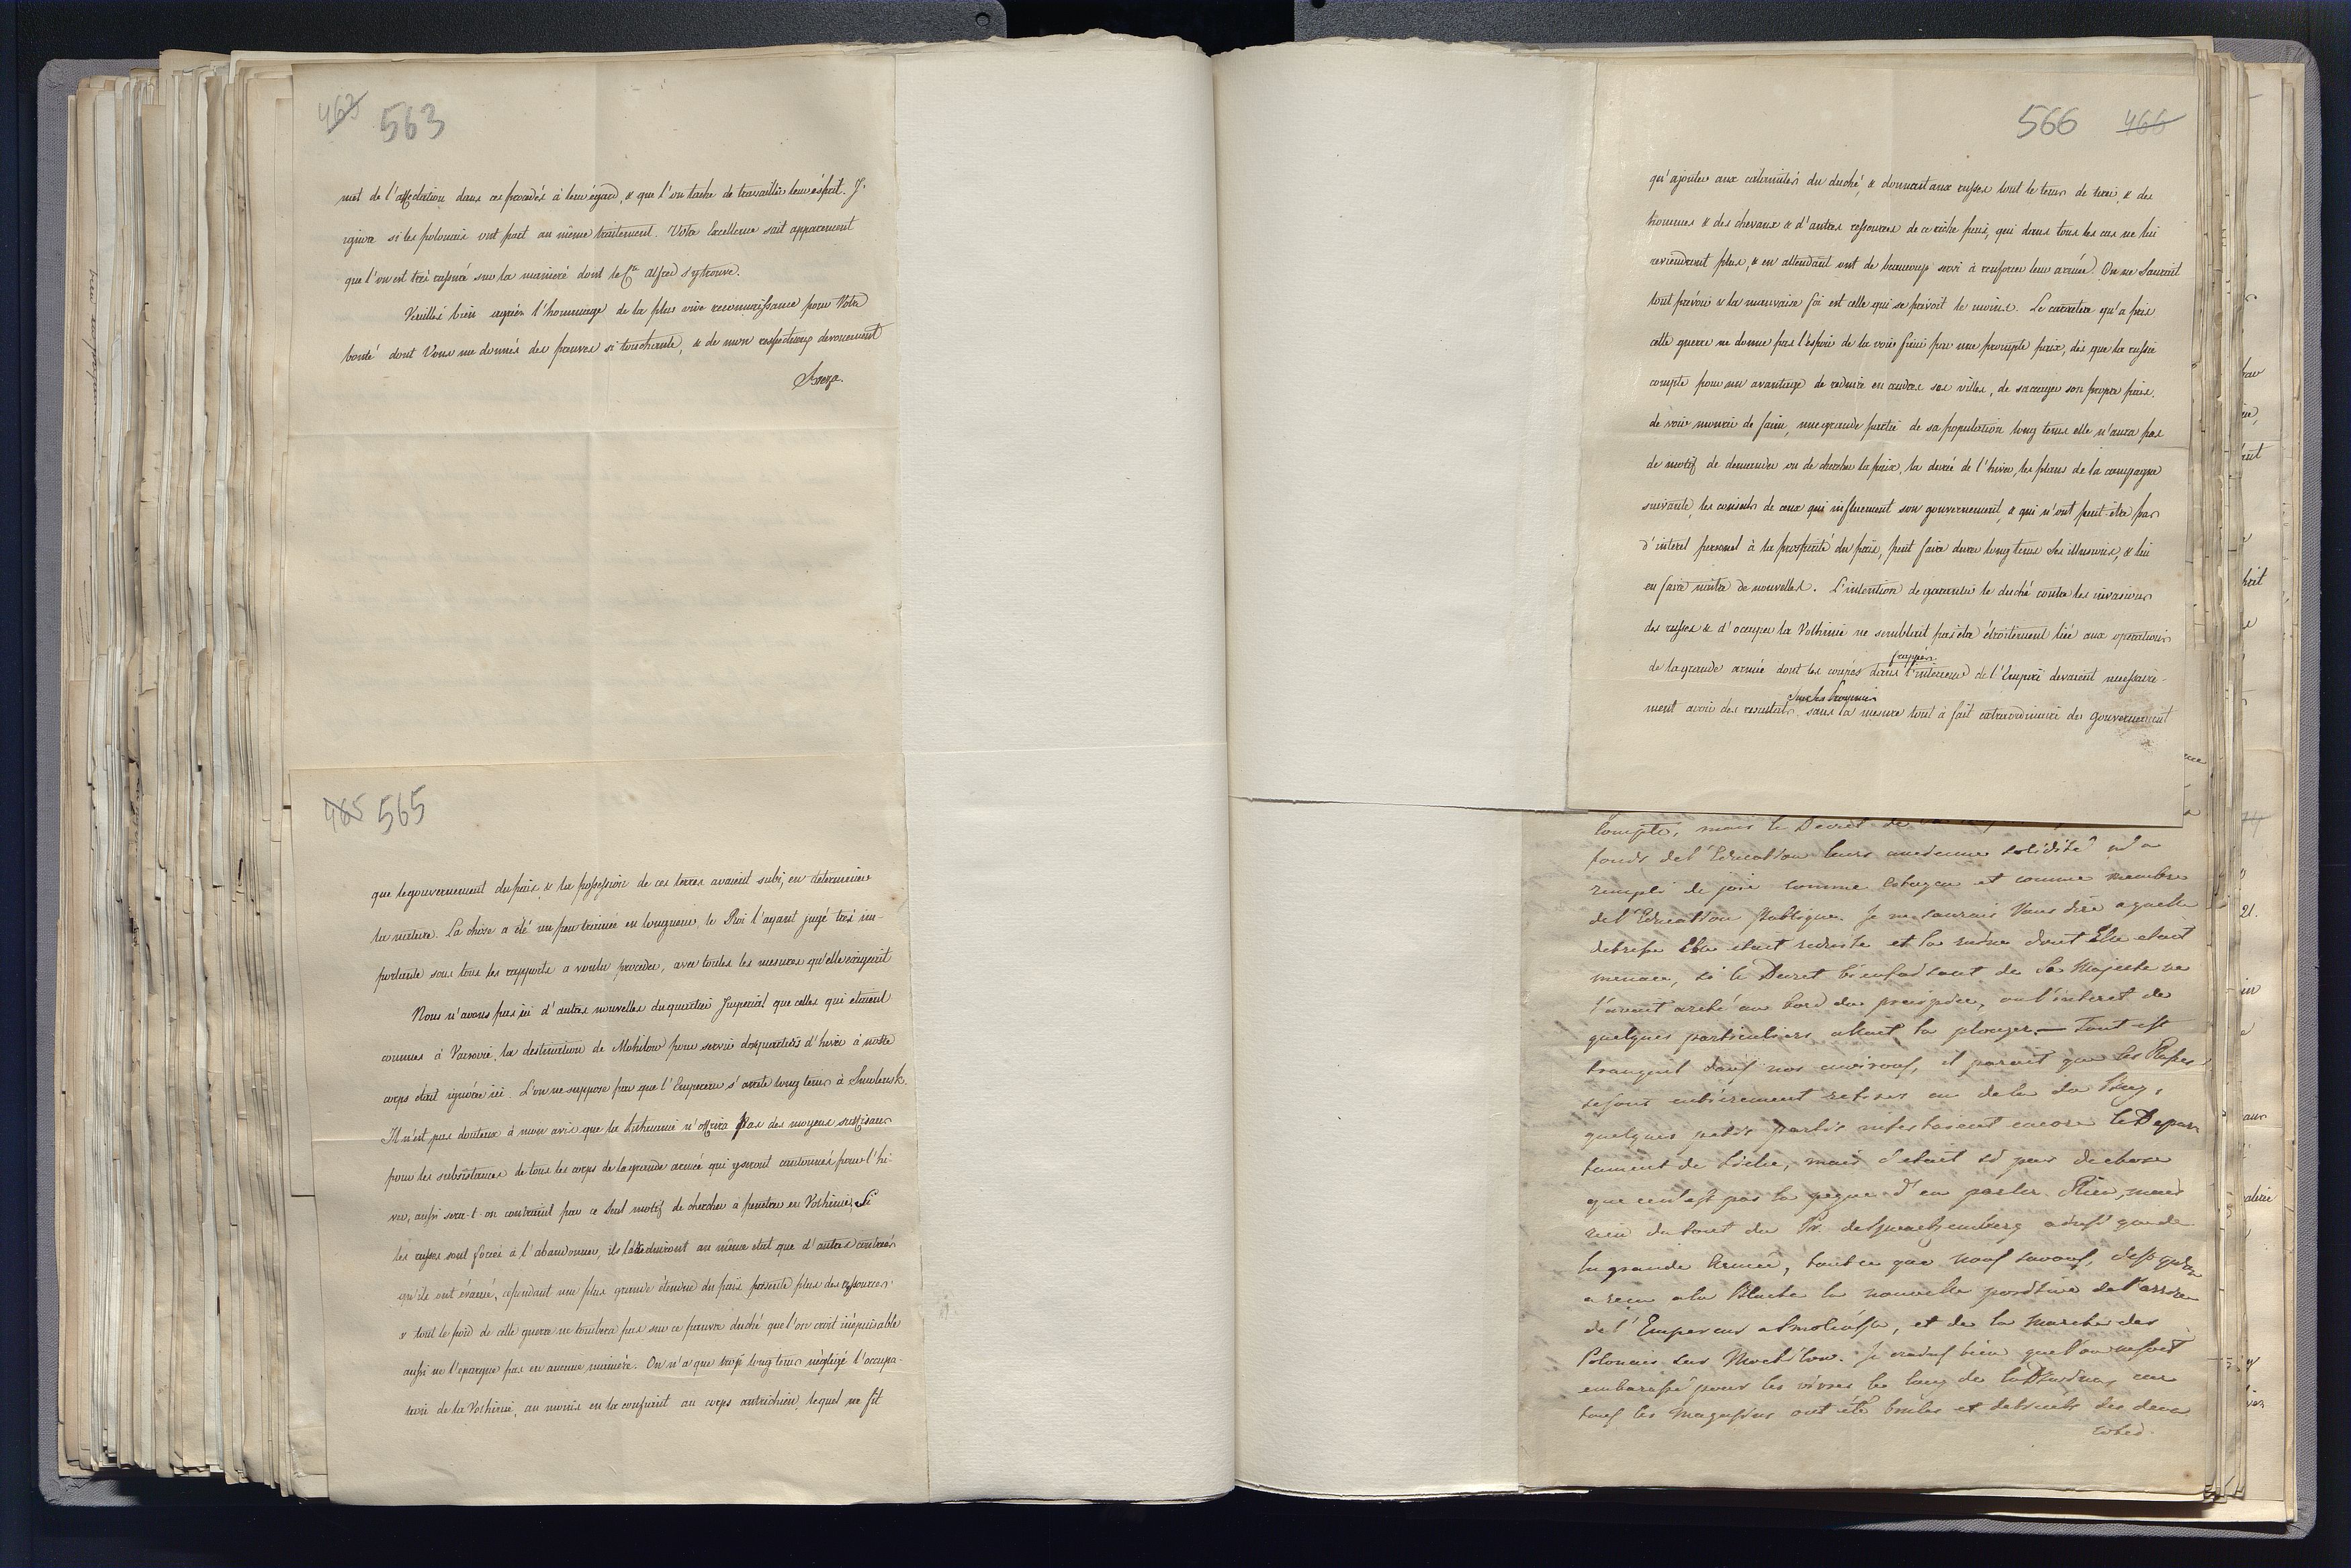 463 563
met de l'affectation dans ces procedés à leur égard, & que l'on tache de travailler leur ésprit. J'
ignore si les polonais ont part au même traitement. Votre Excellence sait apparement
que l'on est très rassuré sur la manieré dont le Cte Alfred s'y trouve.
Veuillés bien agréer l'hommage de la plus vive reconnaissance pour Votre
bonté dont Vous me donnés des preuves si touchante, & de mon respectueux devouement
Breza.
465 565
que le gouvernement du païs & la possession de ces terres avaient subi, en determiner
la nature. La chose a été un peu trainée en longueur, le Roi l'ayant jugé très im-
portante sous tous les rapports a voulu proceder, avec toutes les mesures qu'elle exigeait
Nous n'avons pas ici d'autres nouvelles du quartier Imperial que celles qui etaient
connues à Varsovie, la destination de Mohilow pour servir de quartiers d'hiver à notre
corps etait ignorée ici. L'on ne suppose pas que l'Empereur s'arrete long tems à Smolensk.
Il n'est pas douteux à mon avis que la Lithuanie n'offrira pas des moyens suffisans
pour les subsistances de tous les corps de la grande armée qui y seront cantonnés pour l'hi-
ver, aussi sera-t-on contraint par ce seul motif de chercher à penetrer en Volhinie, Si
les russes sont forcés à l'abandonner, ils la reduiront au même etat que d'autres contrées
qu'ils ont évacué, cependant une plus grande étendue du païs presente plus des ressources
& tout le poid de cette guerre ne tombera pas sur ce pauvre duché que l'on croit inépuisable
aussi ne l'epargne pas en aucune manière. On n'a que trop long tems négligé l'occupa-
tion de la Volhinie, au moins en la confiant au corps autrichien, lequel ne fit
566 466
qu'ajouter aux calamités du duché, & donnait aux russes tout le tems de tirer, & des
hommes & des chevaux & d'autres ressources de ce riche païs, qui dans tous les cas ne lui
reviendront plus, & en attendant ont de beaucoup servi à renforcer leur armée. On ne saurait
tout prévoir & la mauvaise foi est celle qui se prévoit le moins. Le caractere qu'a pris
cette guerre ne donne pas l'éspoir de la voir finir par une prompte paix, dès que la russie
compte pour un avantage de reduire en cendres ses villes, de saccager son propre païs,
de voir mourir de faim, une grande partie de sa population long tems elle n'aura pas
de motif de demander ou de chercher la paix, la durée de l'hiver, les plans de la campagne
suivante, les conseils de ceux qui influencent son gouvernement, & qui n'ont peut-etre pas
d'interet personel à la prosperité du païs, peut faire durer long tems ses illusions, & lui
en faire naitre de nouvelles. L'intention de garantir le duché contre les invasions
des russes & d'occuper la Volhinie ne semblait pas etre étroitement liée aux operations
de la grande armée dont les coupes frappés dans l'interieur de l'Empire devaient necessaire-
ment avoir des resultats sur les sans la mesure tout à fait extraordinaire du gouvernement
Compte, mais le Decret de
fonds de l'Education leurs ancienne solidité m'a
rempli de joie comme Citoyen et comme membre
de l'Education Publique. Je ne saurais Vous dire a quelle
detresse Elle etait reduite et la ruine dont Elle etait
menacée, si le Decret bienfaisant de Sa Majesté ne
l'avait areté au bord du precipice, ou l'interet de
quelques particuliers allait la plonger. — Tout est
tranquil dans nos environs, il parait que les Russes
se sont entièrement retirés au dela du Bug,
quelques petits partis infestaient encore le Depar
tament de Siedlce, mais c'etait si peu de chose
que ce n'est pas la peine d'en parler. Rien, mais
rien du tout du Pr. de Schwartzemberg ainsi que de
la grande Armée, tout ce que nous savons, c'est qu'on
a reçu a la Blacha la nouvelle positive de l'arrivée
de l'Empereur a Smolensk, et de la Marche des
Polonais sur Mochilow. Je crains bien que l'on ne soit
embarassé pour les vivres le long de la Dzwina, car
tous les Magasins ont été brulés et detruits des deux
cotés.